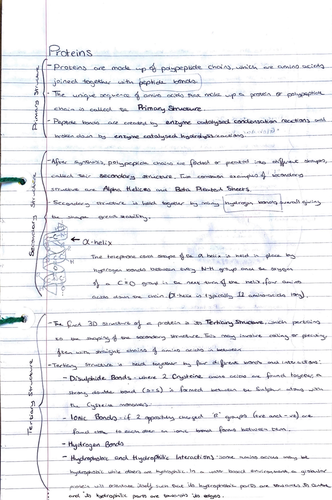 Proteins
Primary Structure
- Proteins are made up of polypeptide chains, which are amino acids
joined together with peptide bonds.
- The unique sequence of amino acids that make up a protein or polypeptide
chain is called the Primary Structure.
- Peptide bonds are created by enzyme catalysed condensation reactions and
broken down by enzyme catalysed hydrolysis reactions.
Secondary Structure
- After synthesis, polypeptide chains are folded or pleated into different shapes,
called their secondary structure. Two common examples of secondary
structure are Alpha Helices and Beta Pleated Sheets.
- Secondary structure is held together by many hydrogen bonds, overall giving
the shape great stability.
← α-helix
The shape of the α helix is held in place by
hydrogen bonds between every N-H group and the oxygen
of a C=O group in the next turn of the helix, four amino
acids down the chain (α helix is typically 11 amino acids long).
Tertiary Structure
- The final 3D structure of a protein is its Tertiary Structure, which pertains
to the shaping of the secondary structure. This may involve coiling or pleating,
often with straight chains of amino acids in between.
- Tertiary structure is held together by four different bonds and interactions:
- Disulphide Bonds - where 2 Cysteine amino acids are found together, a
strong double bond (S=S) is formed between the Sulphur atoms within
the Cysteine monomers.
- Ionic Bonds - if 2 oppositely charged 'R' groups (+ve and -ve) are
found close to each other an ionic bond forms between them.
- Hydrogen Bonds
- Hydrophobic and Hydrophilic Interactions: some amino acids may be
hydrophobic while others are hydrophilic. In a water based environment a globular
protein will orientate itself such that its hydrophobic parts are towards its centre
and its hydrophilic parts are towards its edges.